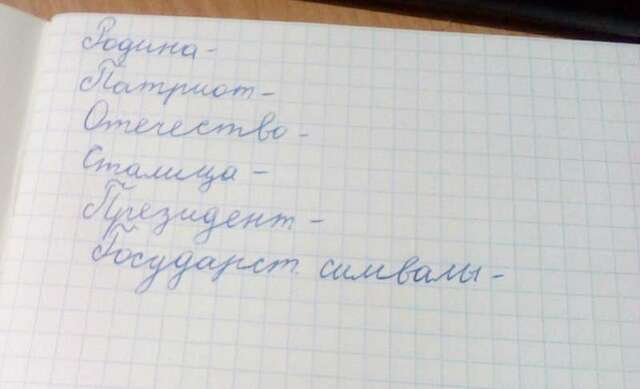 Родина -
Патриот -
Отечество -
Сталица -
Президент -
Государст. симвалы -